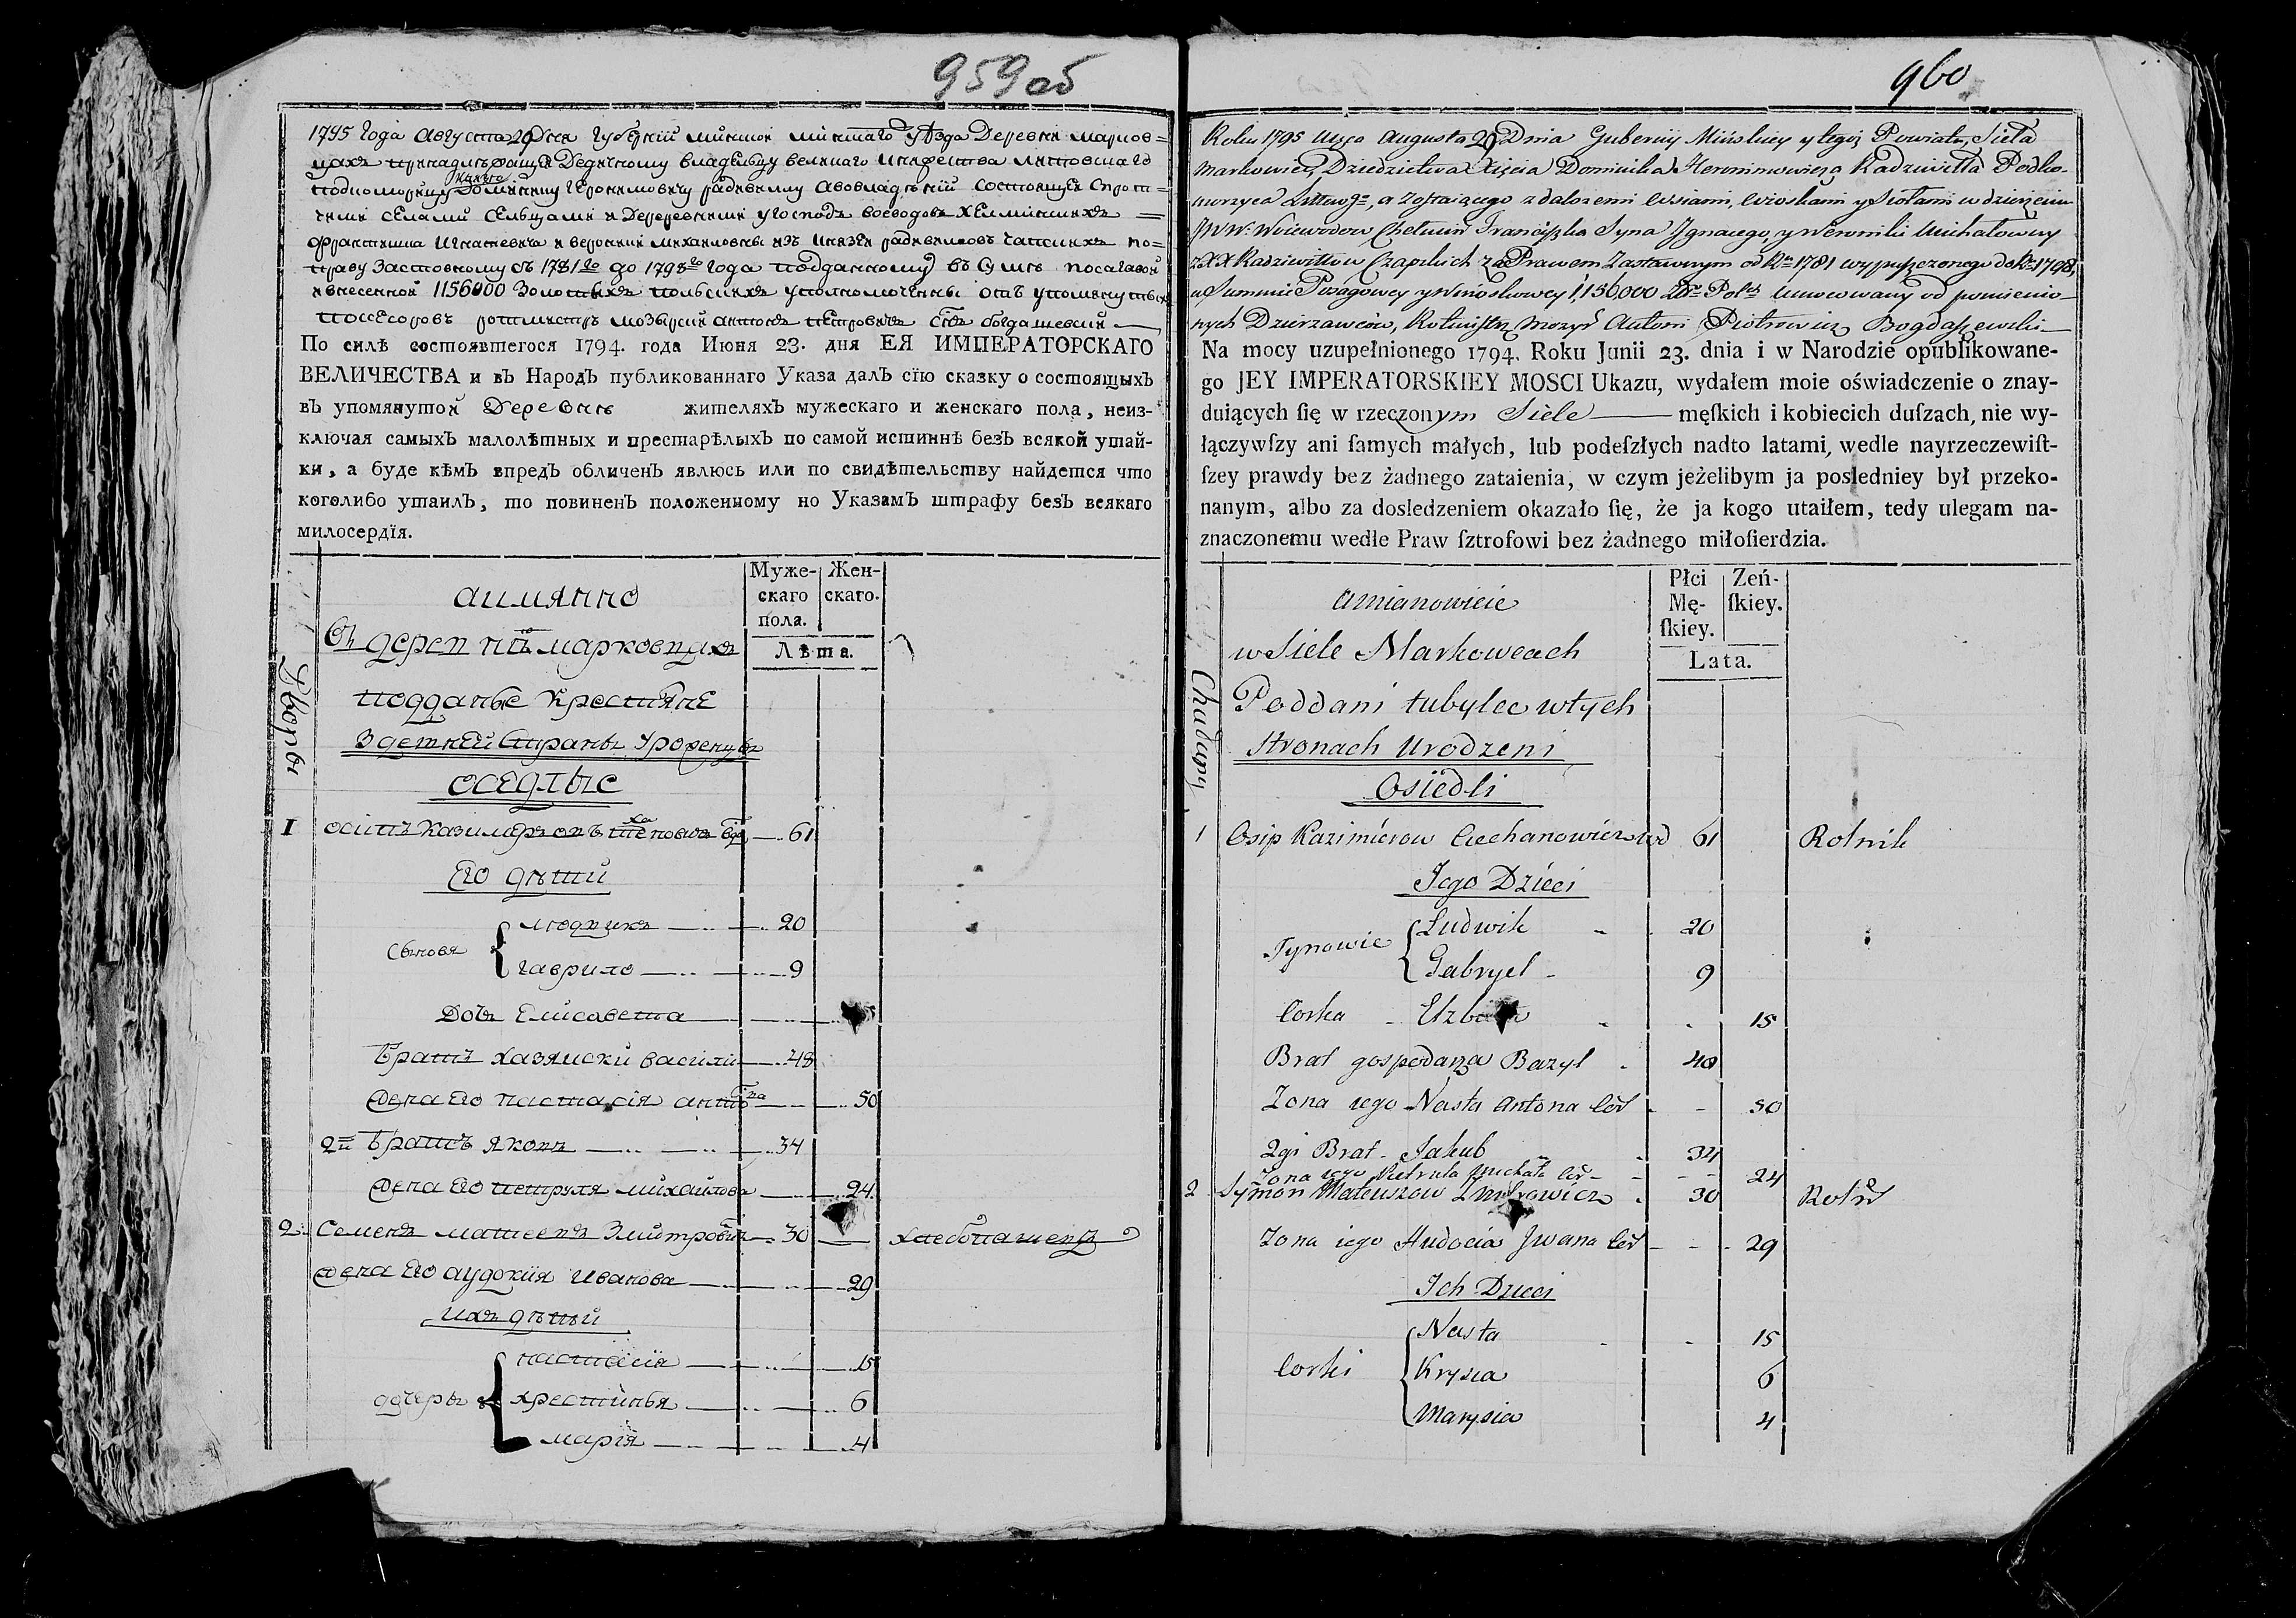 959 об
1795 Года Августа 29 Дня Губернии Минской Минскаго Уѣзда Деревни Марков=
цахъ принадлежащей Дедичному владѣльцу великаго Княжества Литовскаго
подкоморыцу Князю Доминику Геронимовичу радивиллу
селами сельцами и Деревнями у Господъ воеводовъ Хелминскихъ =
Франтишка Игнатевича и вероники Михаиловны изъ Князей радивиловъ чапскихъ по=
праву Заставному съ 1781го до 1798го Года въ Сумѣ посаговой
и внесенной 1156000 Золотыхъ польскихъ уполномоченный отъ упомянутыхъ
поссесоровъ ротмистръ мозырский антонъ петровичъ сынъ богдашевский
По силѣ состоявшегося 1794. года Июня 23. дня ЕЯ ИМПЕРАТОРСКАГО
ВЕЛИЧЕСТВА и въ Народъ публикованнаго Указа далъ сїю сказку о состоящыхъ
въ упомянутой Деревнѣ жителяхъ мужескаго и женскаго пола, неиз-
ключая самыхъ малолѣтныхъ и престарѣлыхъ по самой истиннѣ безъ всякой утай-
ки, а буде кѣмъ впредъ обличенъ явлюсь или по свидѣтельству найдется что
коголибо утаилъ, то повиненъ положенному по Указамъ штрафу безъ всякаго
милосердїя.
Дворы
аимянно
Муже-
скаго
пола.
Жен-
скаго.
Лѣта.
въ деревнѣ марковцахъ
подданые крестяне
Здешней Страны Уроженцы
оседлые
1 осипъ казимеровъ техановичъ вдо 61
Его дѣти
Сыновя
людвикъ 20
гаврило 9
Дочь Елисавета
братъ хазяиски василий 48
жена его настасия антонова 50
2й братъ яковъ 34
жена его петруля михайлова 24
2 Семенъ матеевъ Змитровичъ 30 хлебопашецъ
жена его аудокия иванова 29
ихъ дѣти
дочеры
настасия 15
хрестинья 6
мария 4
960
Roku 1795 Msca Augusta 29 Dnia Guberniy Mińskiey y tegoż Powiatu, Sieła
Markowiec, Dziedzictwa Xięcia Dominika Heronimowicza Radziwiłła Podko-
morzyca Littwgo, a zostaiącego z dalszemi wsiami, wioskami y siołami w dzierżeniu
JWW: Woiewodow Chełmiń Franciszka Syna Jgnacego, y Weroniki Michałowny
z XX Radziwiłłow Czapskich za Prawem Zastawnym od Rku 1781 wypuszczonego do Rku 1798,
w Summie Posagowey y Wnioskowey 1,156,000 Złt Polch Umocowany od pomienio-
nych Dzierżawców, Rotmistrz Mozyr Antoni Piotrowicz Bogdaszewski
Na mocy uzupełnionego 1794. Roku Junii 23. dnia i w Narodzie opublikowane-
go JEY IMPERATORSKIEY MOSCI Ukazu, wydałem moie oświadczenie o znay-
duiących ſię w rzeczonym Siele męſkich i kobiecich duſzach, nie wy-
łączywſzy ani ſamych małych, lub podeſzłych nadto latami, wedle nayrzeczewiſt-
ſzey prawdy bez żadnego zataienia, w czym jeżelibym ja posledniey był przeko-
nanym, albo za dosledzeniem okazało ſię, że ja kogo utaiłem, tedy ulegam na-
znaczonemu wedle Praw ſztrofowi bez żadnego miłoſierdzia.
Chałupy
Amianowicie
Płci
Mę-
ſkiey.
Zeń-
ſkiey.
Lata.
w Siele Markowcach
Poddani tubylce w tych
Stronach Urodzeni
Osiedli
1 Osip Kazimierow Ciechanowicz wd 61 Rolnik
Jego Dzieci
Synowie
Ludwik 20
Gabryel 9
Corka Elzbieta 15
Brat gospodarza Bazyl 48
Zona iego Nasta Antona Cor 50
2gi Brat Jakub 34
Zona iego Pietrula Michała Cor 24
2 Symon Mateuszow Zmitrowicz 30 Roln
Zona iego Hudocia Jwana Cor 29
Ich Dzieci
Corki
Nasta 15
Krysia 6
Marysia 4